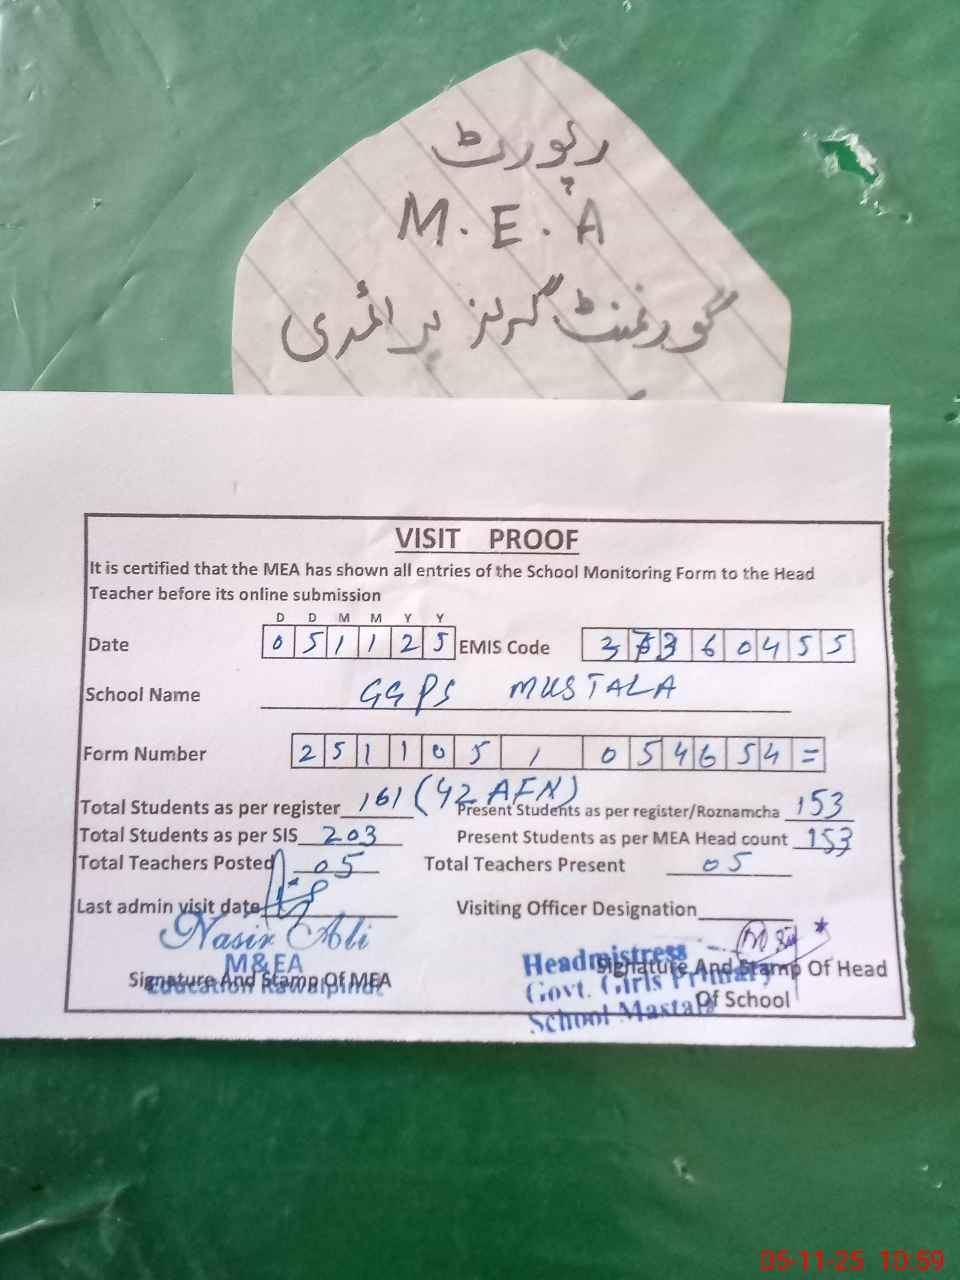 رپورٹ
M.E.A
گورنمنٹ گرلز پرائمری
VISIT PROOF
It is certified that the MEA has shown all entries of the School Monitoring Form to the Head
Teacher before its online submission
D D M M Y Y
Date 0 5 1 1 2 5 EMIS Code 3 7 3 6 0 4 5 5
School Name GGPS MUSTALA
Form Number 2 5 1 1 0 5 / 0 5 4 6 5 4 =
Total Students as per register 161 (42 AFN) Present Students as per register/Roznamcha 153
Total Students as per SIS 203 Present Students as per MEA Head count 153
Total Teachers Posted 05 Total Teachers Present 05
Last admin visit date Visiting Officer Designation
Nasir Ali
M&EA
Education Rawalpindi
Signature And Stamp Of MEA
Headmistress
Govt. Girls Primary
School Mastala
Signature And Stamp Of Head
Of School
05-11-25 10:59